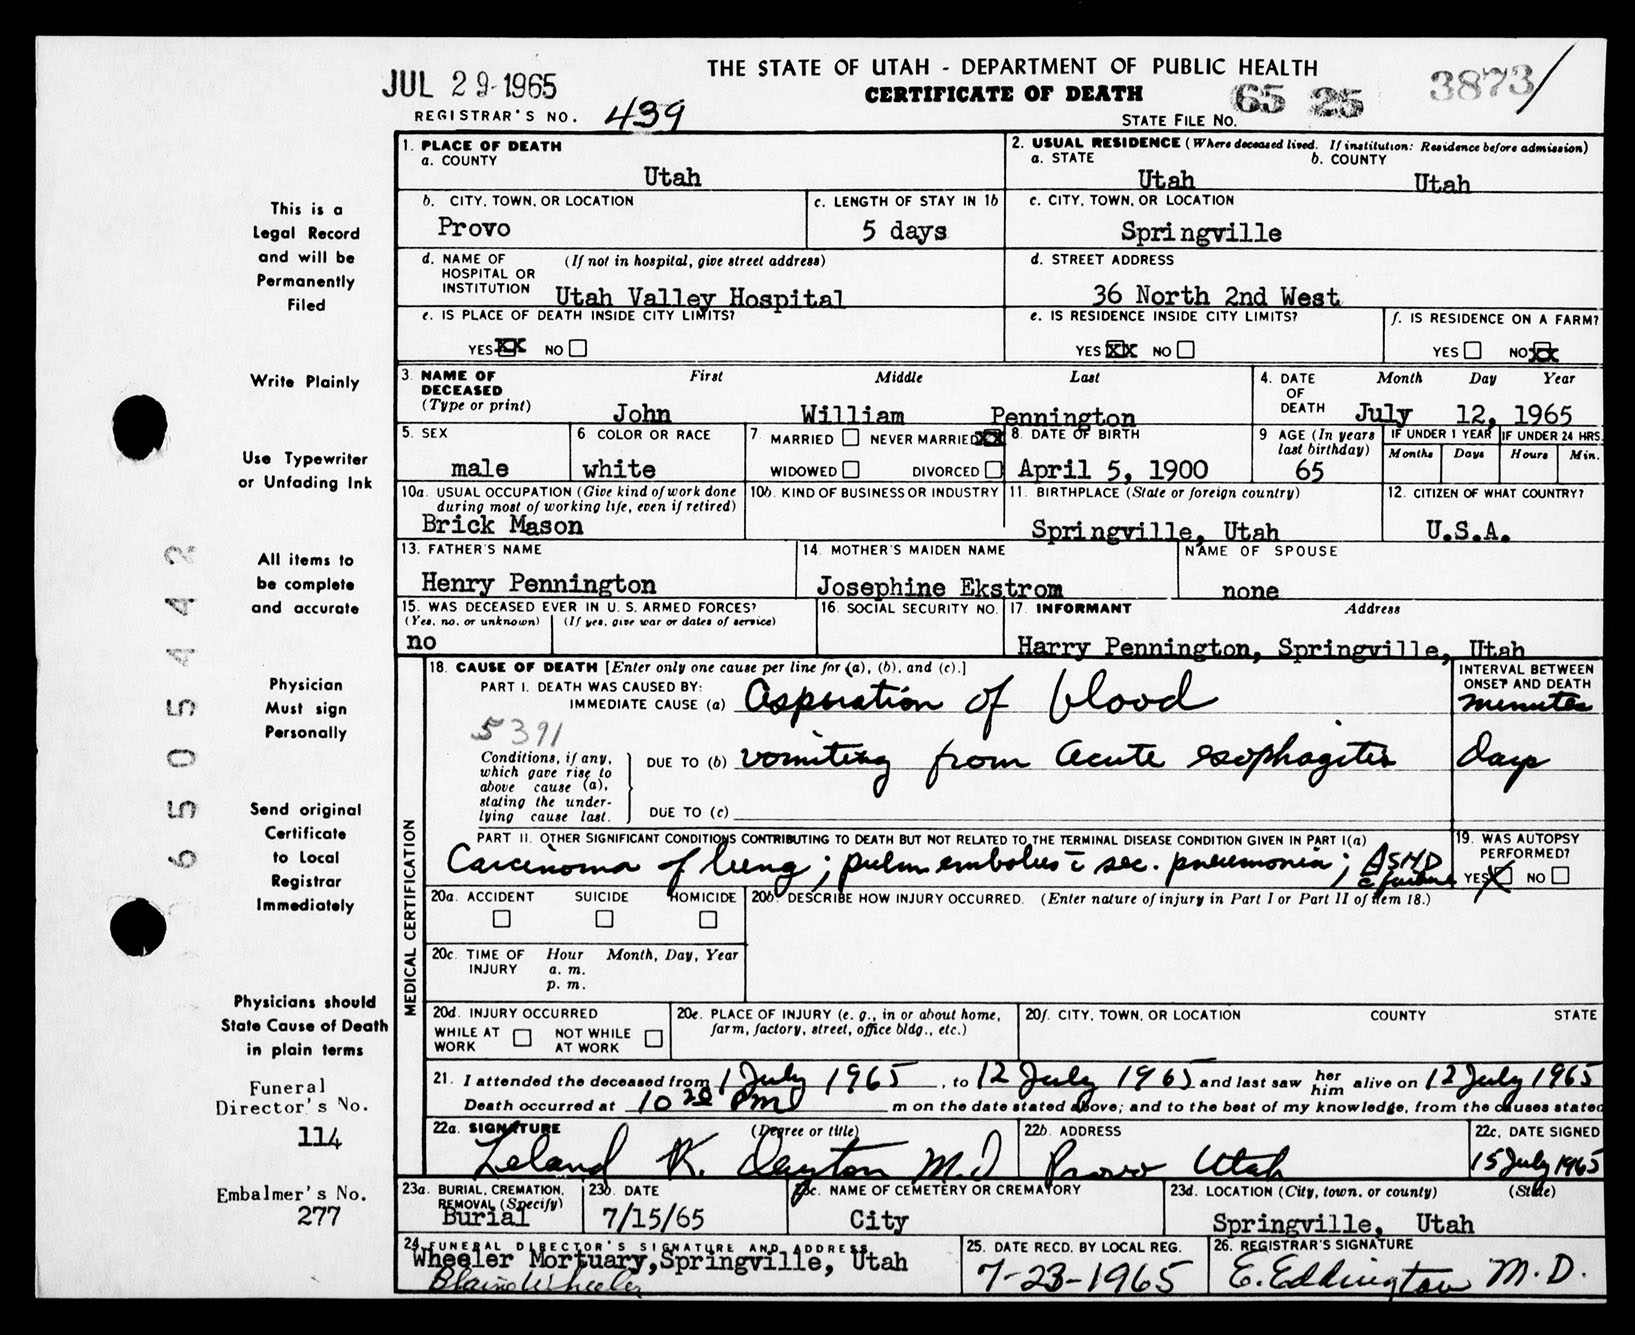 THE STATE OF UTAH - DEPARTMENT OF PUBLIC HEALTH
CERTIFICATE OF DEATH
JUL 29 1965
3873/
REGISTRAR'S NO. 439
STATE FILE NO. 65 25
This is a
Legal Record
and will be
Permanently
Filed
Write Plainly
Use Typewriter
or Unfading Ink
All items to
be complete
and accurate
Physician
Must sign
Personally
Send original
Certificate
to Local
Registrar
Immediately
Physicians should
State Cause of Death
in plain terms
Funeral
Director's No.
114
Embalmer's No.
277
6505442
1. PLACE OF DEATH
a. COUNTY
Utah
2. USUAL RESIDENCE (Where deceased lived. If institution: Residence before admission)
a. STATE b. COUNTY
Utah Utah
b. CITY, TOWN, OR LOCATION
Provo
c. LENGTH OF STAY IN 1b
5 days
c. CITY, TOWN, OR LOCATION
Springville
d. NAME OF HOSPITAL OR INSTITUTION (If not in hospital, give street address)
Utah Valley Hospital
d. STREET ADDRESS
36 North 2nd West
e. IS PLACE OF DEATH INSIDE CITY LIMITS?
YES XX NO
e. IS RESIDENCE INSIDE CITY LIMITS?
YES XX NO
f. IS RESIDENCE ON A FARM?
YES NO XX
3. NAME OF DECEASED (Type or print)
First Middle Last
John William Pennington
4. DATE OF DEATH
Month Day Year
July 12, 1965
5. SEX
male
6 COLOR OR RACE
white
7 MARRIED NEVER MARRIED XX
WIDOWED DIVORCED
8. DATE OF BIRTH
April 5, 1900
9 AGE (In years last birthday)
65
IF UNDER 1 YEAR
Months Days
IF UNDER 24 HRS.
Hours Min.
10a. USUAL OCCUPATION (Give kind of work done during most of working life, even if retired)
Brick Mason
10b. KIND OF BUSINESS OR INDUSTRY
11. BIRTHPLACE (State or foreign country)
Springville, Utah
12. CITIZEN OF WHAT COUNTRY?
U.S.A.
13. FATHER'S NAME
Henry Pennington
14. MOTHER'S MAIDEN NAME
Josephine Ekstrom
NAME OF SPOUSE
none
15. WAS DECEASED EVER IN U. S. ARMED FORCES?
(Yes, no, or unknown) (If yes, give war or dates of service)
no
16. SOCIAL SECURITY NO.
17. INFORMANT Address
Harry Pennington, Springville, Utah
MEDICAL CERTIFICATION
18. CAUSE OF DEATH [Enter only one cause per line for (a), (b), and (c).]
INTERVAL BETWEEN ONSET AND DEATH
PART I. DEATH WAS CAUSED BY:
IMMEDIATE CAUSE (a) Aspiration of blood minutes
5391
Conditions, if any, which gave rise to above cause (a), stating the underlying cause last.
DUE TO (b) vomiting from acute esophagitis days
DUE TO (c)
PART II. OTHER SIGNIFICANT CONDITIONS CONTRIBUTING TO DEATH BUT NOT RELATED TO THE TERMINAL DISEASE CONDITION GIVEN IN PART I(a)
Carcinoma of lung; pulm embolus c̄ sec. pneumonia; ASHD c̄ failure
19. WAS AUTOPSY PERFORMED?
YES X NO
20a. ACCIDENT SUICIDE HOMICIDE
20b. DESCRIBE HOW INJURY OCCURRED. (Enter nature of injury in Part I or Part II of item 18.)
20c. TIME OF INJURY Hour Month, Day, Year
a. m.
p. m.
20d. INJURY OCCURRED
WHILE AT WORK NOT WHILE AT WORK
20e. PLACE OF INJURY (e. g., in or about home, farm, factory, street, office bldg., etc.)
20f. CITY, TOWN, OR LOCATION COUNTY STATE
21. I attended the deceased from 1 July 1965, to 12 July 1965 and last saw her him alive on 12 July 1965
Death occurred at 10 20 PM m on the date stated above; and to the best of my knowledge, from the causes stated
22a. SIGNATURE (Degree or title)
Leland K. Dayton M.D
22b. ADDRESS
Provo Utah
22c. DATE SIGNED
15 July 1965
23a. BURIAL, CREMATION, REMOVAL (Specify)
Burial
23b. DATE
7/15/65
23c. NAME OF CEMETERY OR CREMATORY
City
23d. LOCATION (City, town, or county) (State)
Springville, Utah
24. FUNERAL DIRECTOR'S SIGNATURE AND ADDRESS
Wheeler Mortuary, Springville, Utah
Blaine Wheeler
25. DATE RECD. BY LOCAL REG.
7-23-1965
26. REGISTRAR'S SIGNATURE
E. Eddington M.D.